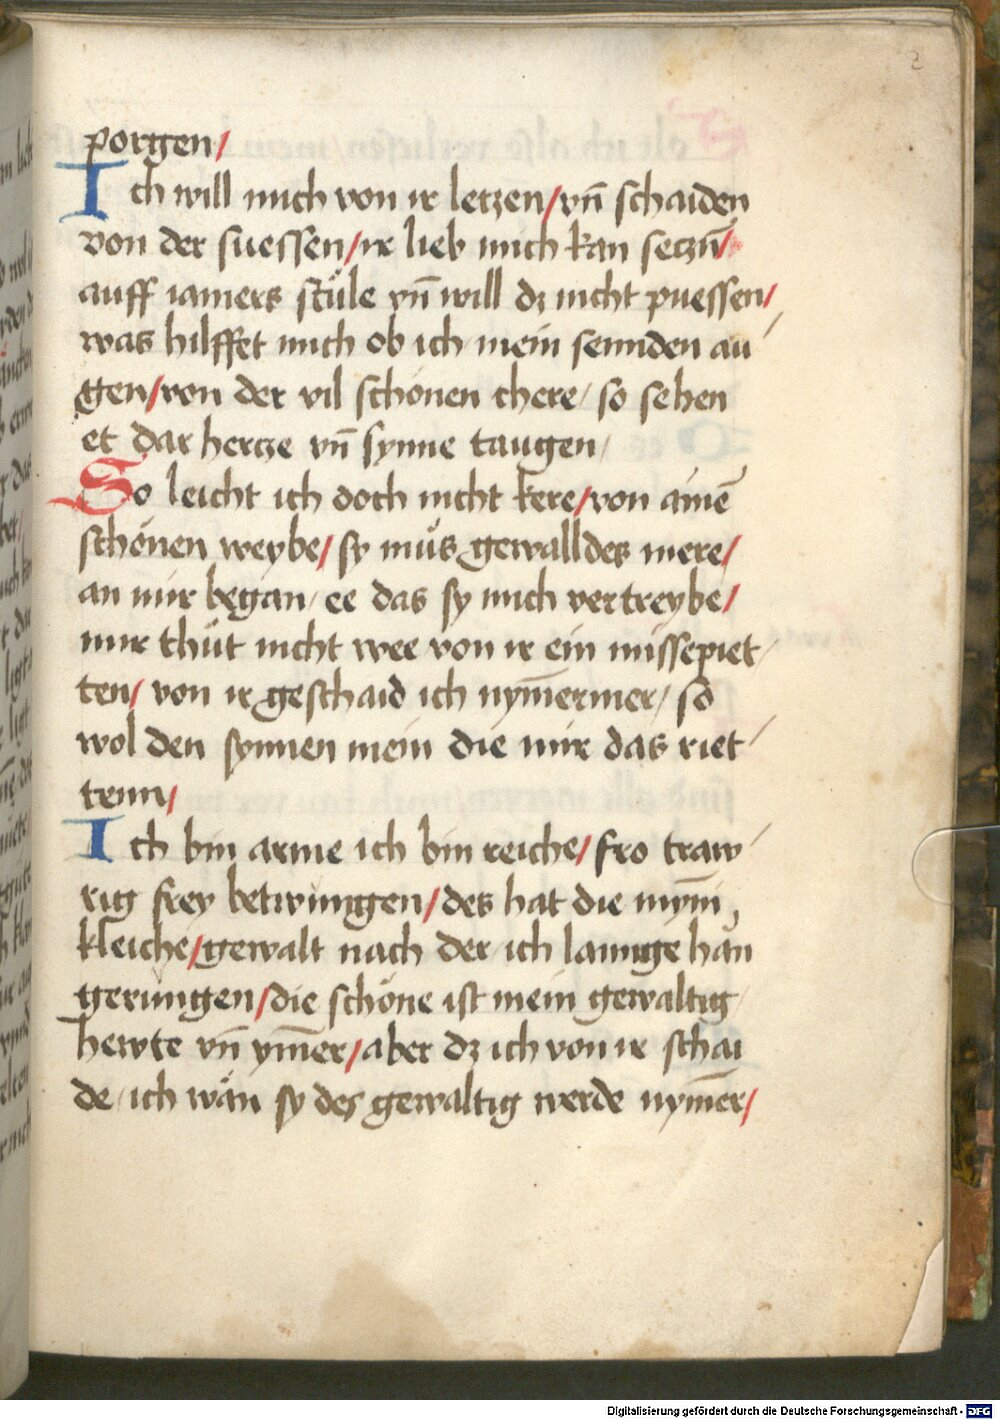 2
porgen/
Ich will mich von ir letzen/vn̄ schaiden
von der suessen/ir lieb mich kan setzn̄/
auff iamers stüle vn̄ will dz nicht puessen/
was hilffet mich ob ich mein sennden au/
gen/von der vil schonen chere/ so sehen
et dar hertze vn̄ synne taugen/
So leicht ich doch nicht kere/von ainē
schönen weybe/ sy müs gewalldes mere/
an mir began/ ee das sy mich vertreybe/
mir thüt nicht wee von ir ein missepiet/
ten/ von ir geschaid ich nym̄ermer/ so
wol den synnen mein die mir das riet/
tenn/
Ich bin arme ich bin reiche/ fro traw/
rig frey betwungen/des hat die mym̄
kleiche/gewalt nach der ich lannge han
gerungen/die schöne ist mein gewaltig/
hewte vn̄ ym̄er/aber dz ich von ir schai
de/ich wän sy des gewaltig werde nym̄er/
Digitalisierung gefördert durch die Deutsche Forschungsgemeinschaft - DFG